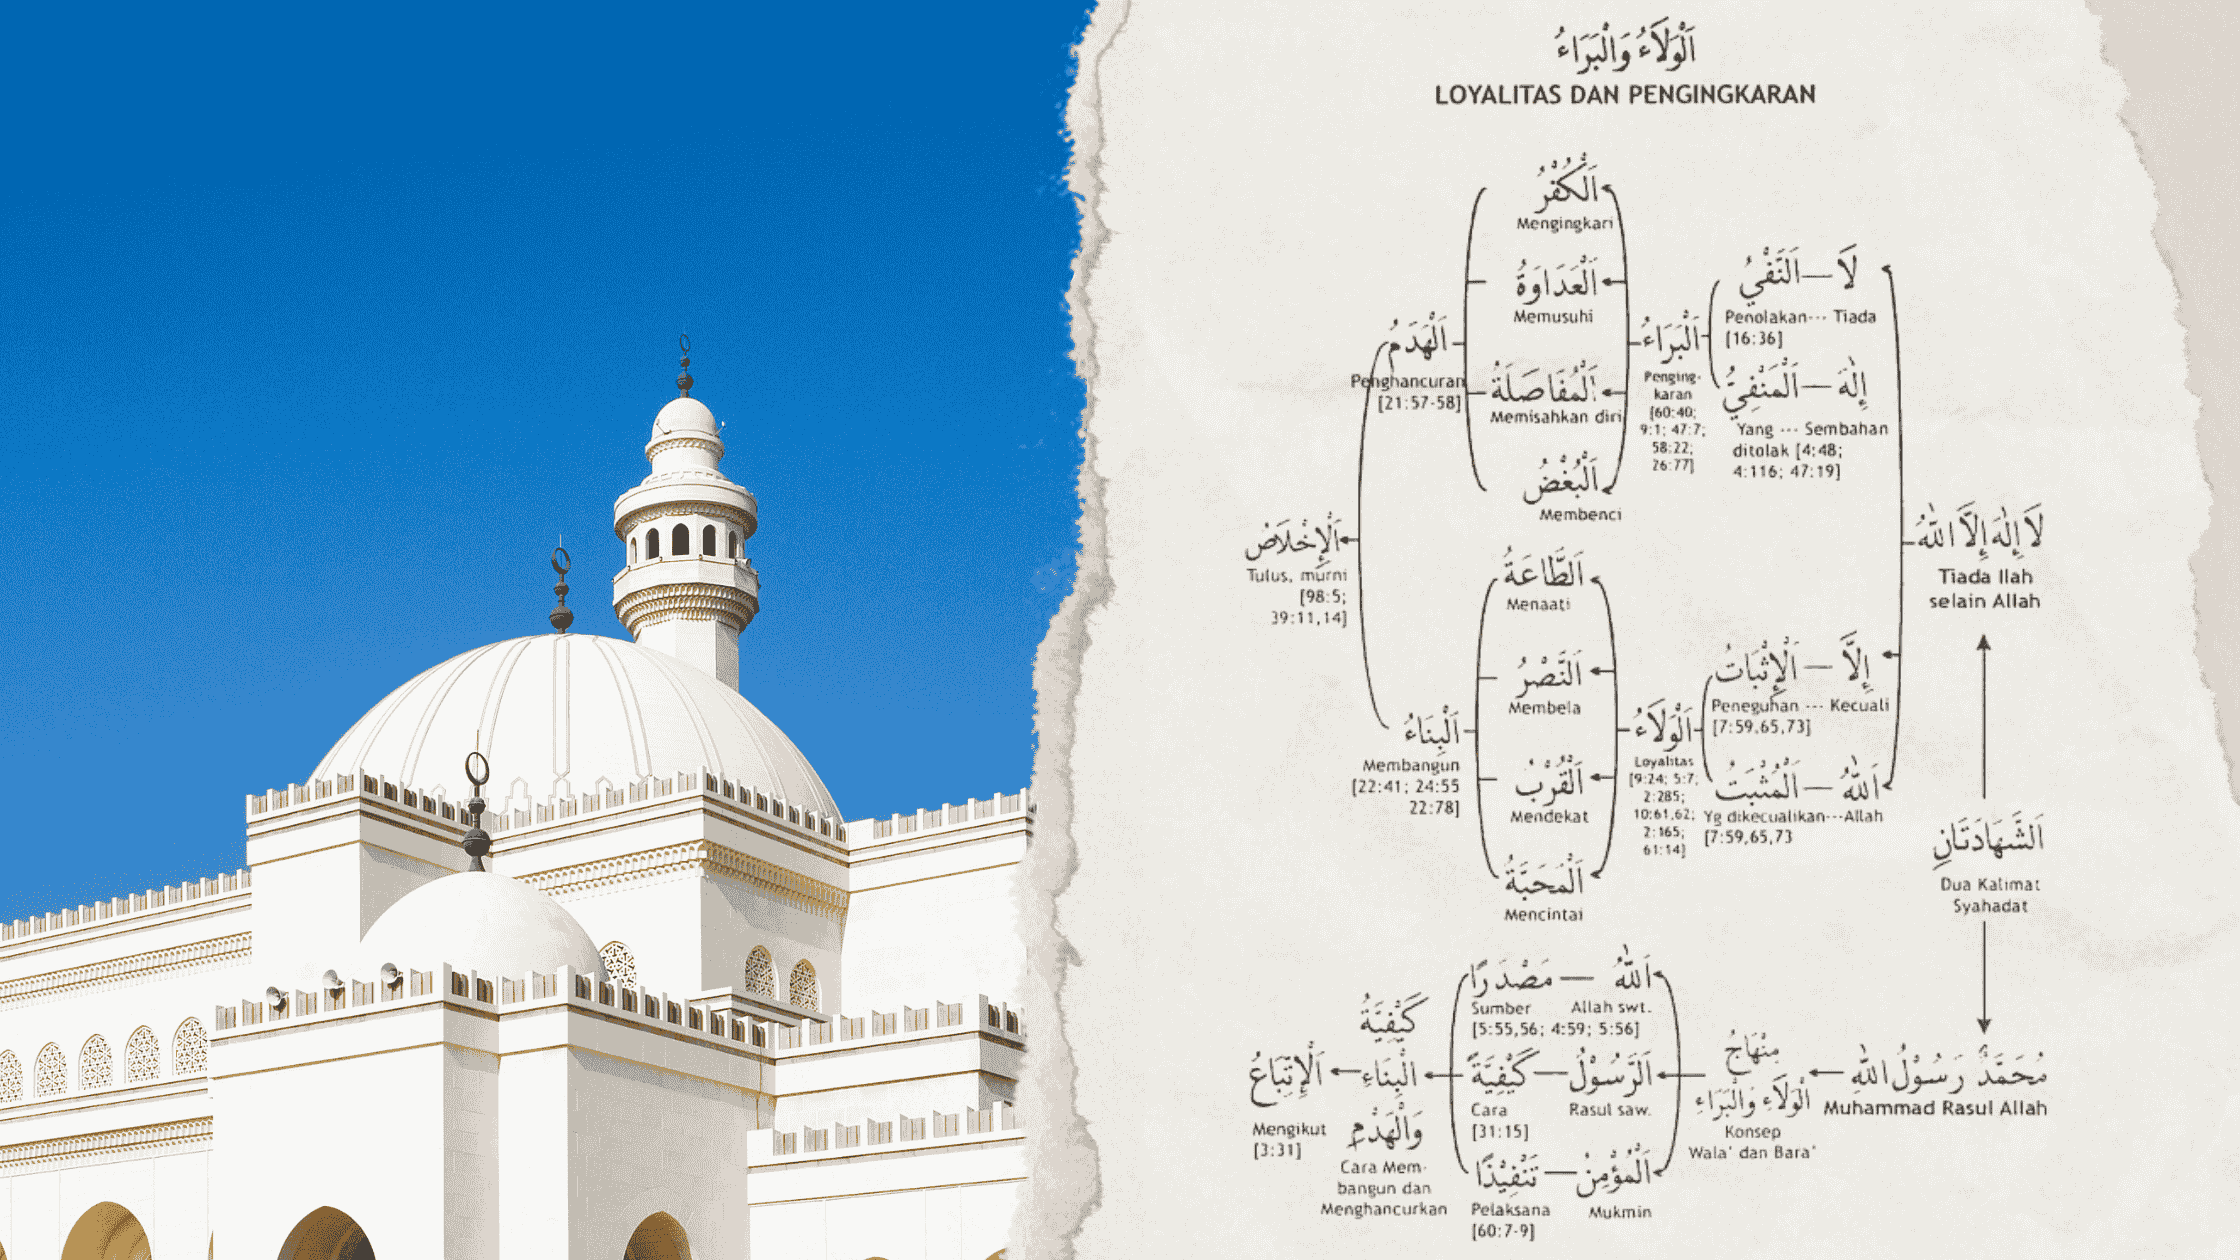 اَلْوَلَاءُ وَالْبَرَاءُ
LOYALITAS DAN PENGINGKARAN
اَلْكُفْرُ
Mengingkari
اَلْعَدَاوَةُ
Memusuhi
اَلْمُفَاصَلَةُ
Memisahkan diri
اَلْبُغْضُ
Membenci
لَا — اَلنَّفْيُ
Penolakan--- Tiada
[16:36]
إِلٰهَ — اَلْمَنْفِيُّ
Yang --- Sembahan
ditolak [4:48;
4:116; 47:19]
اَلْبَرَاءُ
Penging-
karan
[60:40;
9:1; 47:7;
58:22;
26:77]
اَلْهَدَمُ
Penghancuran
[21:57-58]
لَا إِلٰهَ إِلَّا اللّٰهُ
Tiada Ilah
selain Allah
اَلْإِخْلَاصُ
Tulus, murni
[98:5;
39:11,14]
اَلطَّاعَةُ
Menaati
اَلنَّصْرُ
Membela
اَلْقُرْبُ
Mendekat
اَلْمَحَبَّةُ
Mencintai
إِلَّا — اَلْإِثْبَاتُ
Peneguhan --- Kecuali
[7:59,65,73]
اَللّٰهُ — اَلْمُثْبَتُ
Yg dikecualikan---Allah
[7:59,65,73
اَلْوَلَاءُ
Loyalitas
[9:24; 5:7;
2:285;
10:61,62;
2:165;
61:14]
اَلْبِنَاءُ
Membangun
[22:41; 24:55
22:78]
اَلشَّهَادَتَانِ
Dua Kalimat
Syahadat
مُحَمَّدٌ رَسُوْلُ اللّٰهِ
Muhammad Rasul Allah
مِنْهَاجُ
الْوَلَاءِ وَالْبَرَاءِ
Konsep
Wala' dan Bara'
اَللّٰهُ — مَصْدَرًا
Sumber Allah swt.
[5:55,56; 4:59; 5:56]
اَلرَّسُوْلُ — كَيْفِيَّةً
Cara Rasul saw.
[31:15]
اَلْمُؤْمِنُ — تَنْفِيْذًا
Pelaksana Mukmin
[60:7-9]
كَيْفِيَّةُ
الْبِنَاءِ
وَالْهَدْمِ
Cara Mem-
bangun dan
Menghancurkan
اَلْإِتِّبَاعُ
Mengikut
[3:31]